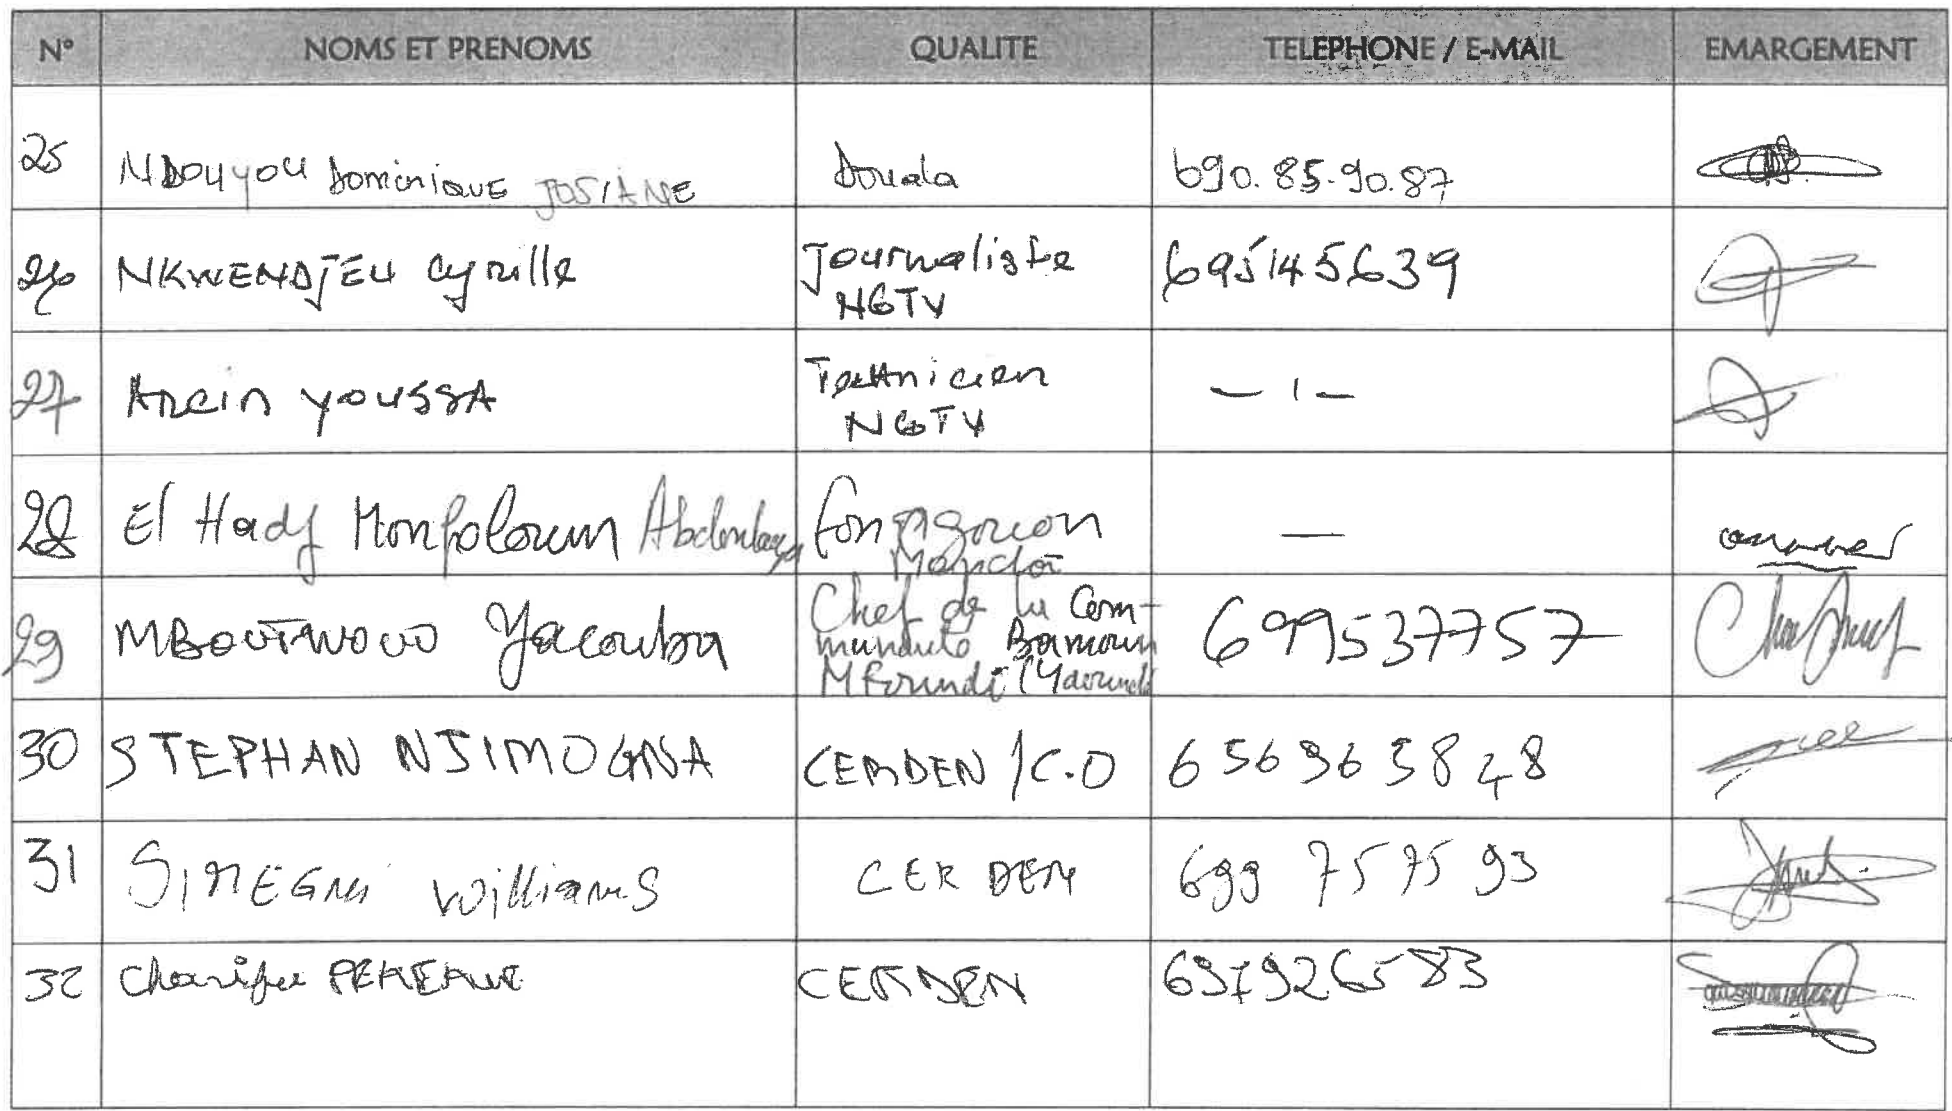 N° NOMS ET PRENOMS QUALITE TELEPHONE / E-MAIL EMARGEMENT
25 NDOUYOU Dominique JOSIANE Douala 690.85.90.87
26 NKWENDJEU Cyrille Journaliste NGTV 695145639
27 Arcin YOUSSA Technicien NGTV — ı —
28 El Hadj Monfoloum Abdoulaye —
29 MBOUTWOUO Yacouba Chef de la Com-
Bamoun 699537757
30 STEPHAN NJIMOGNA CERDEN / C.O 656363828
31 SIMEGNI Williams CERDEN 699 75 75 93
32 Charifa CERDEN 697926583